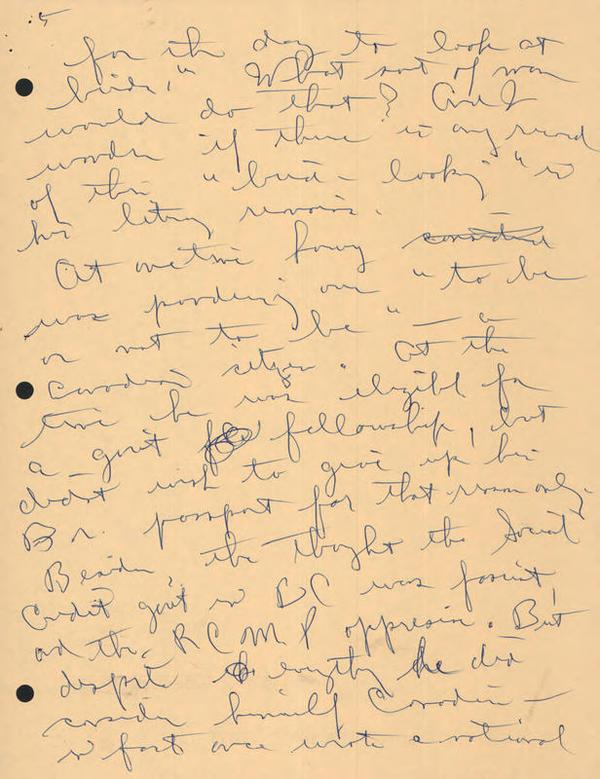 5
for the day to look at
birds," What sort of man
would do that? And I
wonder if there is any record
of this "bird-looking" in
his literary remains.
At one time Lowry
was pondering over "to be
or not to be" — a
Canadian citizen. At the
time he was eligible for
a gov't fellowship, but
didn't wish to give up his
Br. passport for that reason only.
Besides, he thought the Social
Credit gov't in BC was fascist,
and the RCMP oppressive. But
despite everything he did
consider himself Canadian —
in fact once wrote a national